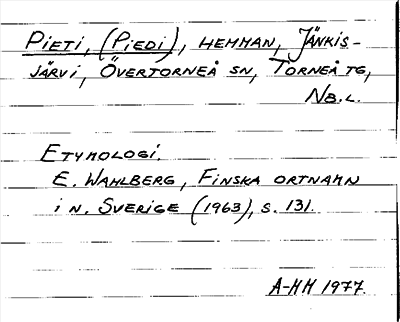 PIETI, (PIEDI), HEMMAN, JÄNKIS-
JÄRVI, ÖVERTORNEÅ SN, TORNEÅ TG,
NB.L.
ETYMOLOGI.
E. WAHLBERG, FINSKA ORTNAMN
I N. SVERIGE (1963), S. 131.
A-HH 1977.